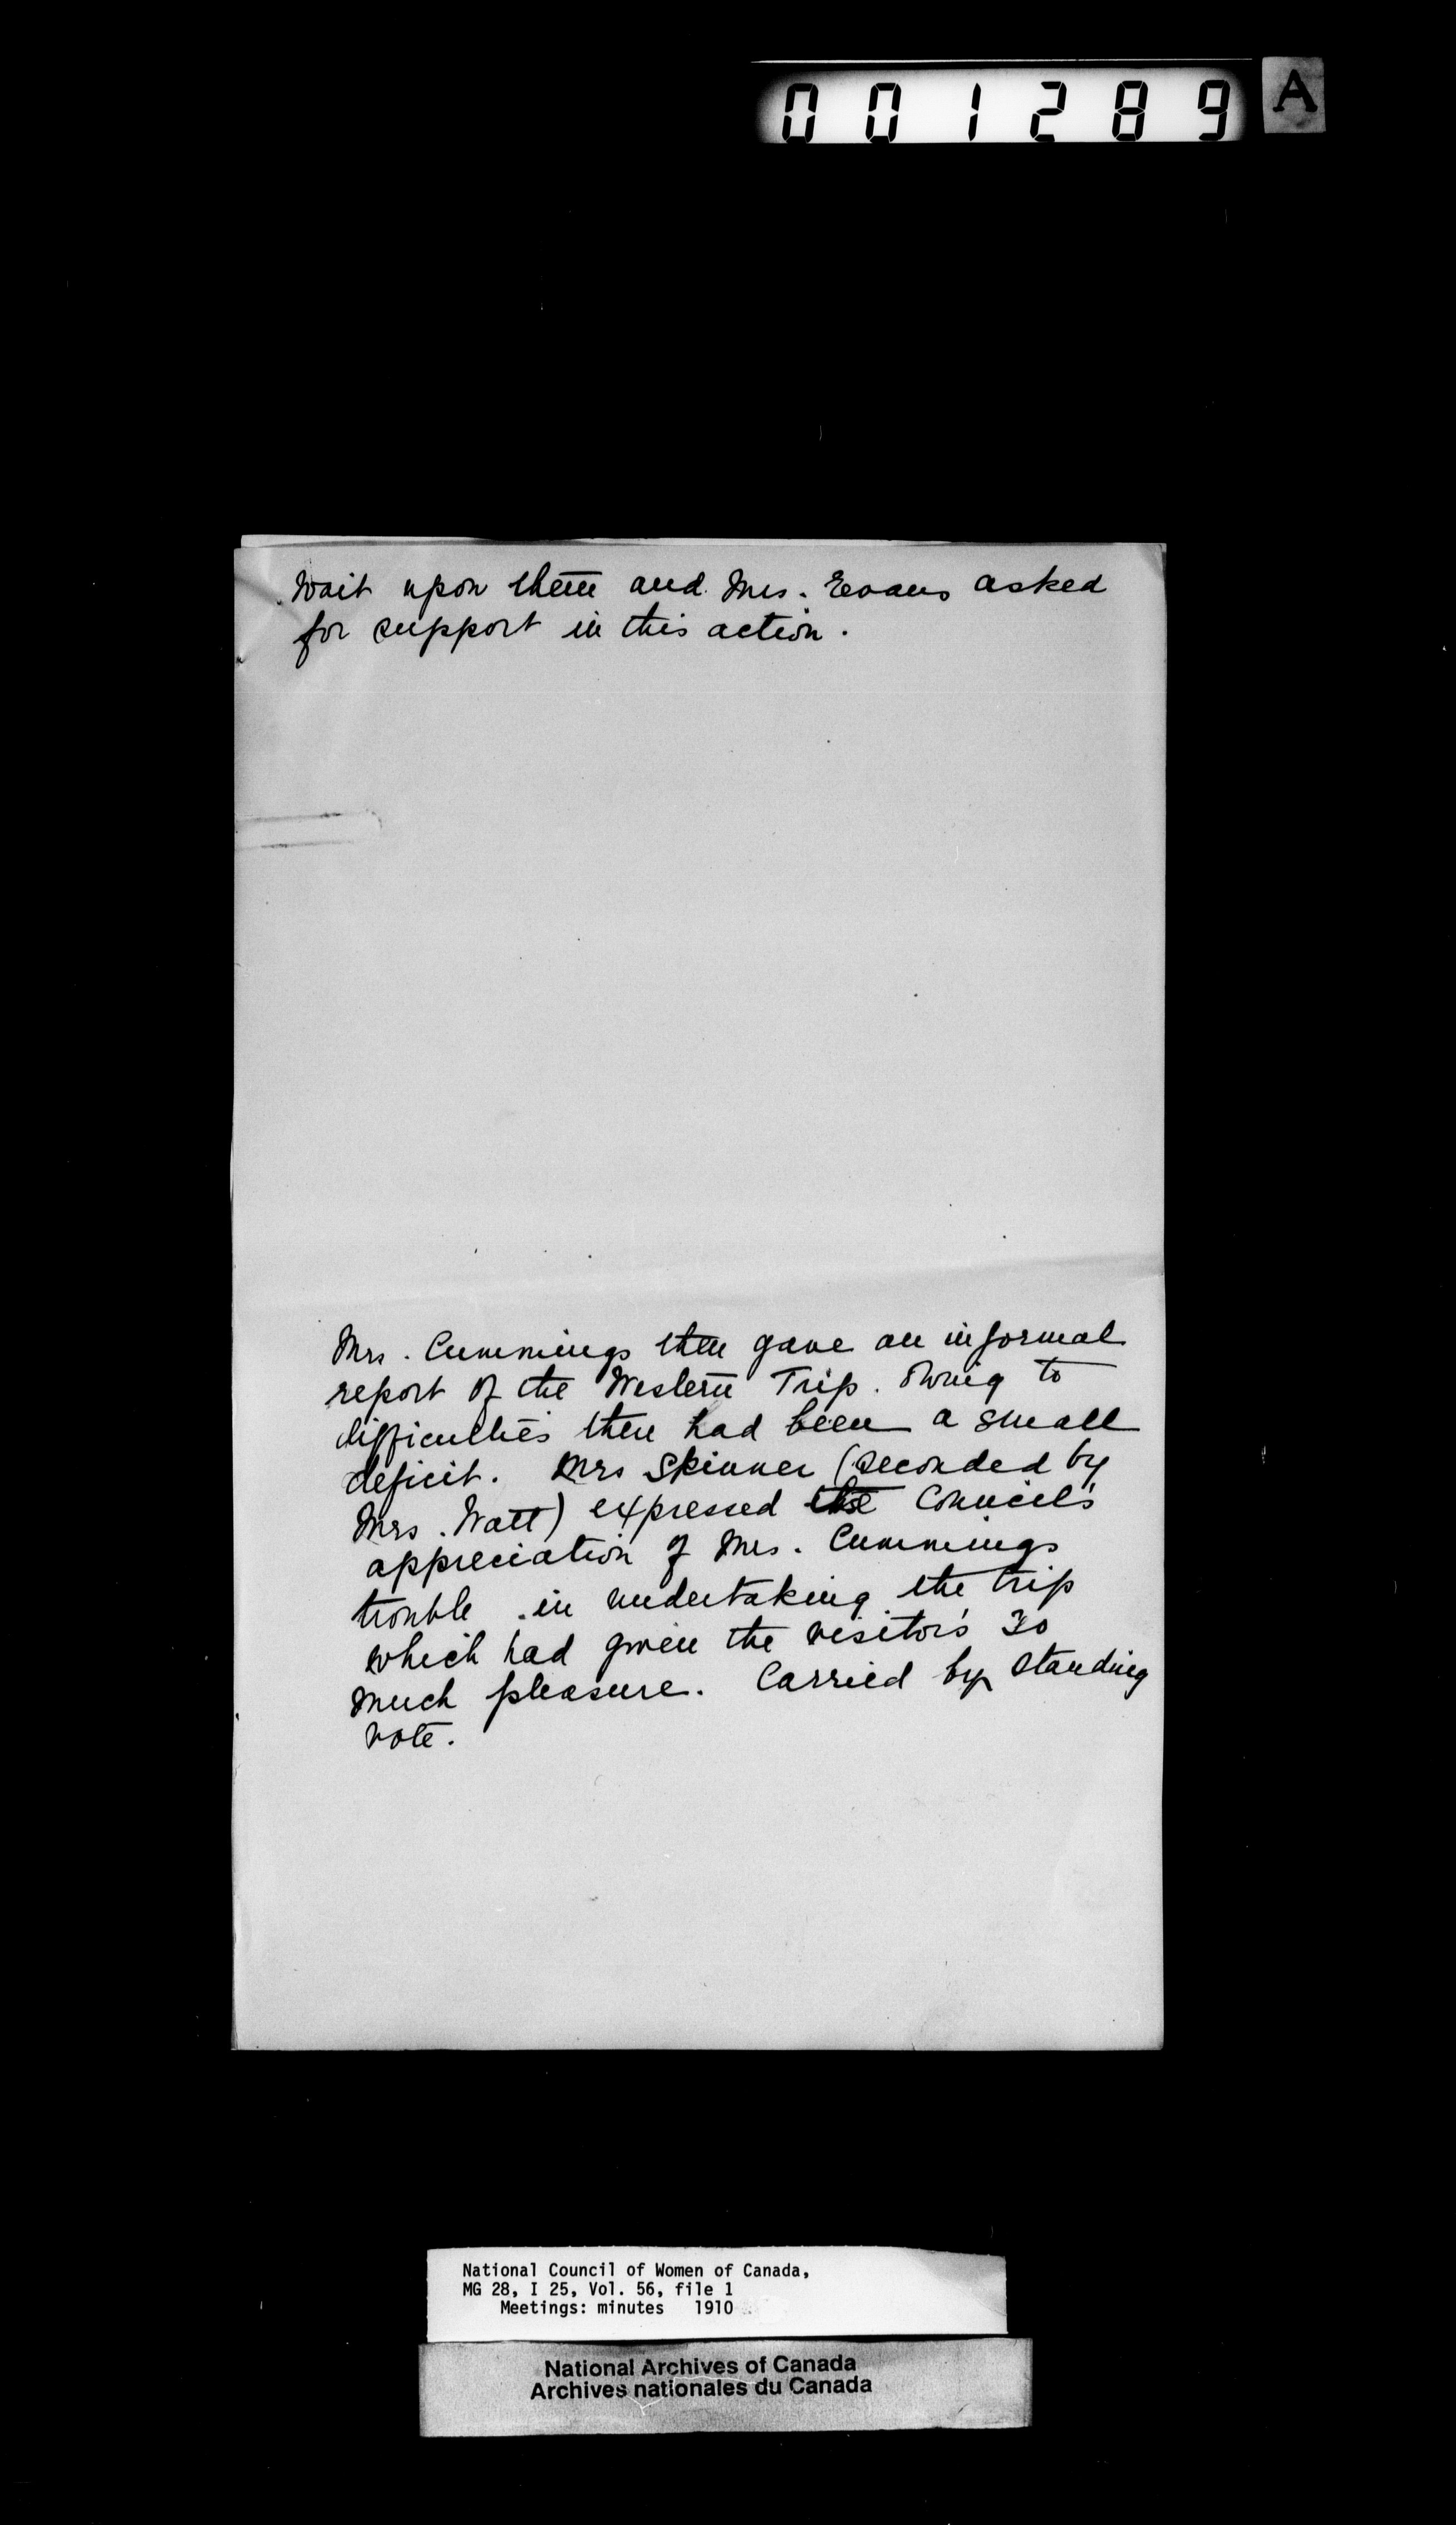 001289 A
Wait upon them and Mrs. Evans asked
for support in this action.
Mrs. Cummings then gave an informal
report of the Western Trip. Owing to
difficulties there had been a small
deficit. Mrs Skinner (seconded by
Mrs. Watt) expressed the Council's
appreciation of Mrs. Cummings
trouble in undertaking the trip
which had given the visitors so
much pleasure. Carried by standing
vote.
National Council of Women of Canada,
MG 28, I 25, Vol. 56, file 1
Meetings: minutes 1910
National Archives of Canada
Archives nationales du Canada